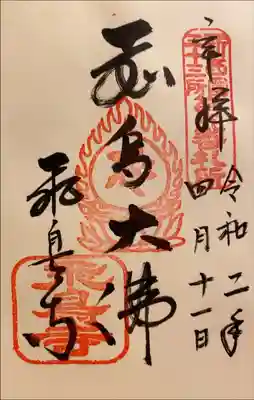 奉拝
令和二年
四月十一日
飛鳥大佛
飛鳥寺
飛鳥寺